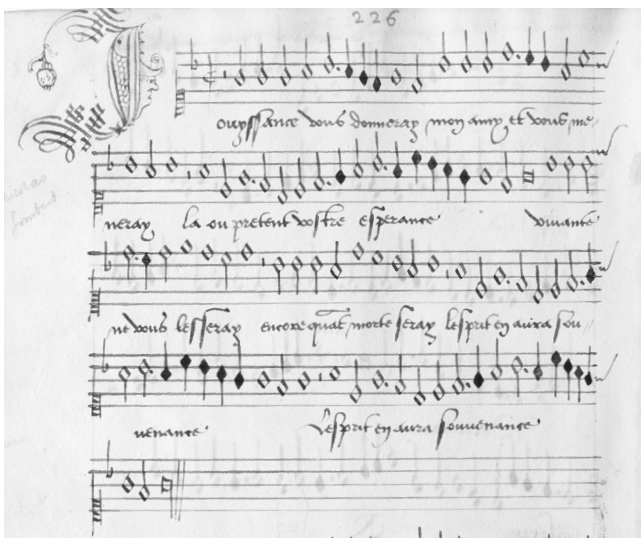 226
Jouyssance vous donneray mon amy et vous me-
neray la ou pretent vostre esperance vivante
ne vous lesseray encore quãt morte seray lesprit en aura sou-
venance Lesprit en aura souvenance